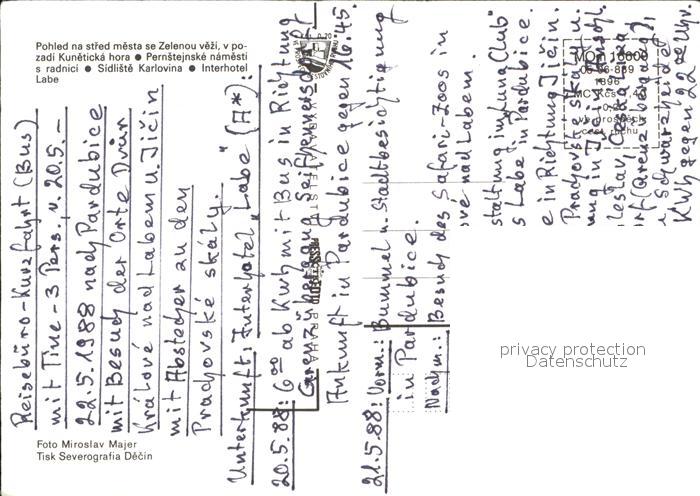 Pohled na střed města se Zelenou věží, v po-
zadí Kunětická hora ● Pernštejnské náměstí
s radnicí ● Sídliště Karlovina ● Interhotel
Labe
Reisebüro-Kurzfahrt (Bus)
mit Tine - 3 Pers. v. 20.5.-
22.5.1988 nach Pardubice
mit Besuch der Orte Dvůr
Králové nad Labem u. Jičín
mit Abstecher zu den
Prachovské skály.
Unterkunft: Interhotel „Labe" (A*):
20.5.88: 6⁰⁰ ab Kwh mit Bus in Richtung
Grenzübergang Seifhennersdorf
Ankunft in Pardubice gegen 16.45.
21.5.88: Vorm.: Bummel u. Stadtbesichtigung
in Pardubice.
Nachm.: Besuch des Safari-Zoos in
ové nad Labem.
staltung im „Luna Club"
s Labe in Pardubice.
e in Richtung Jičín.
Prachovské skály u.
ung in Jičín
Schwarzheide
KWh gegen 22⁰⁰ Uhr.
Foto Miroslav Majer
Tisk Severografia Děčín
privacy protection
Datenschutz